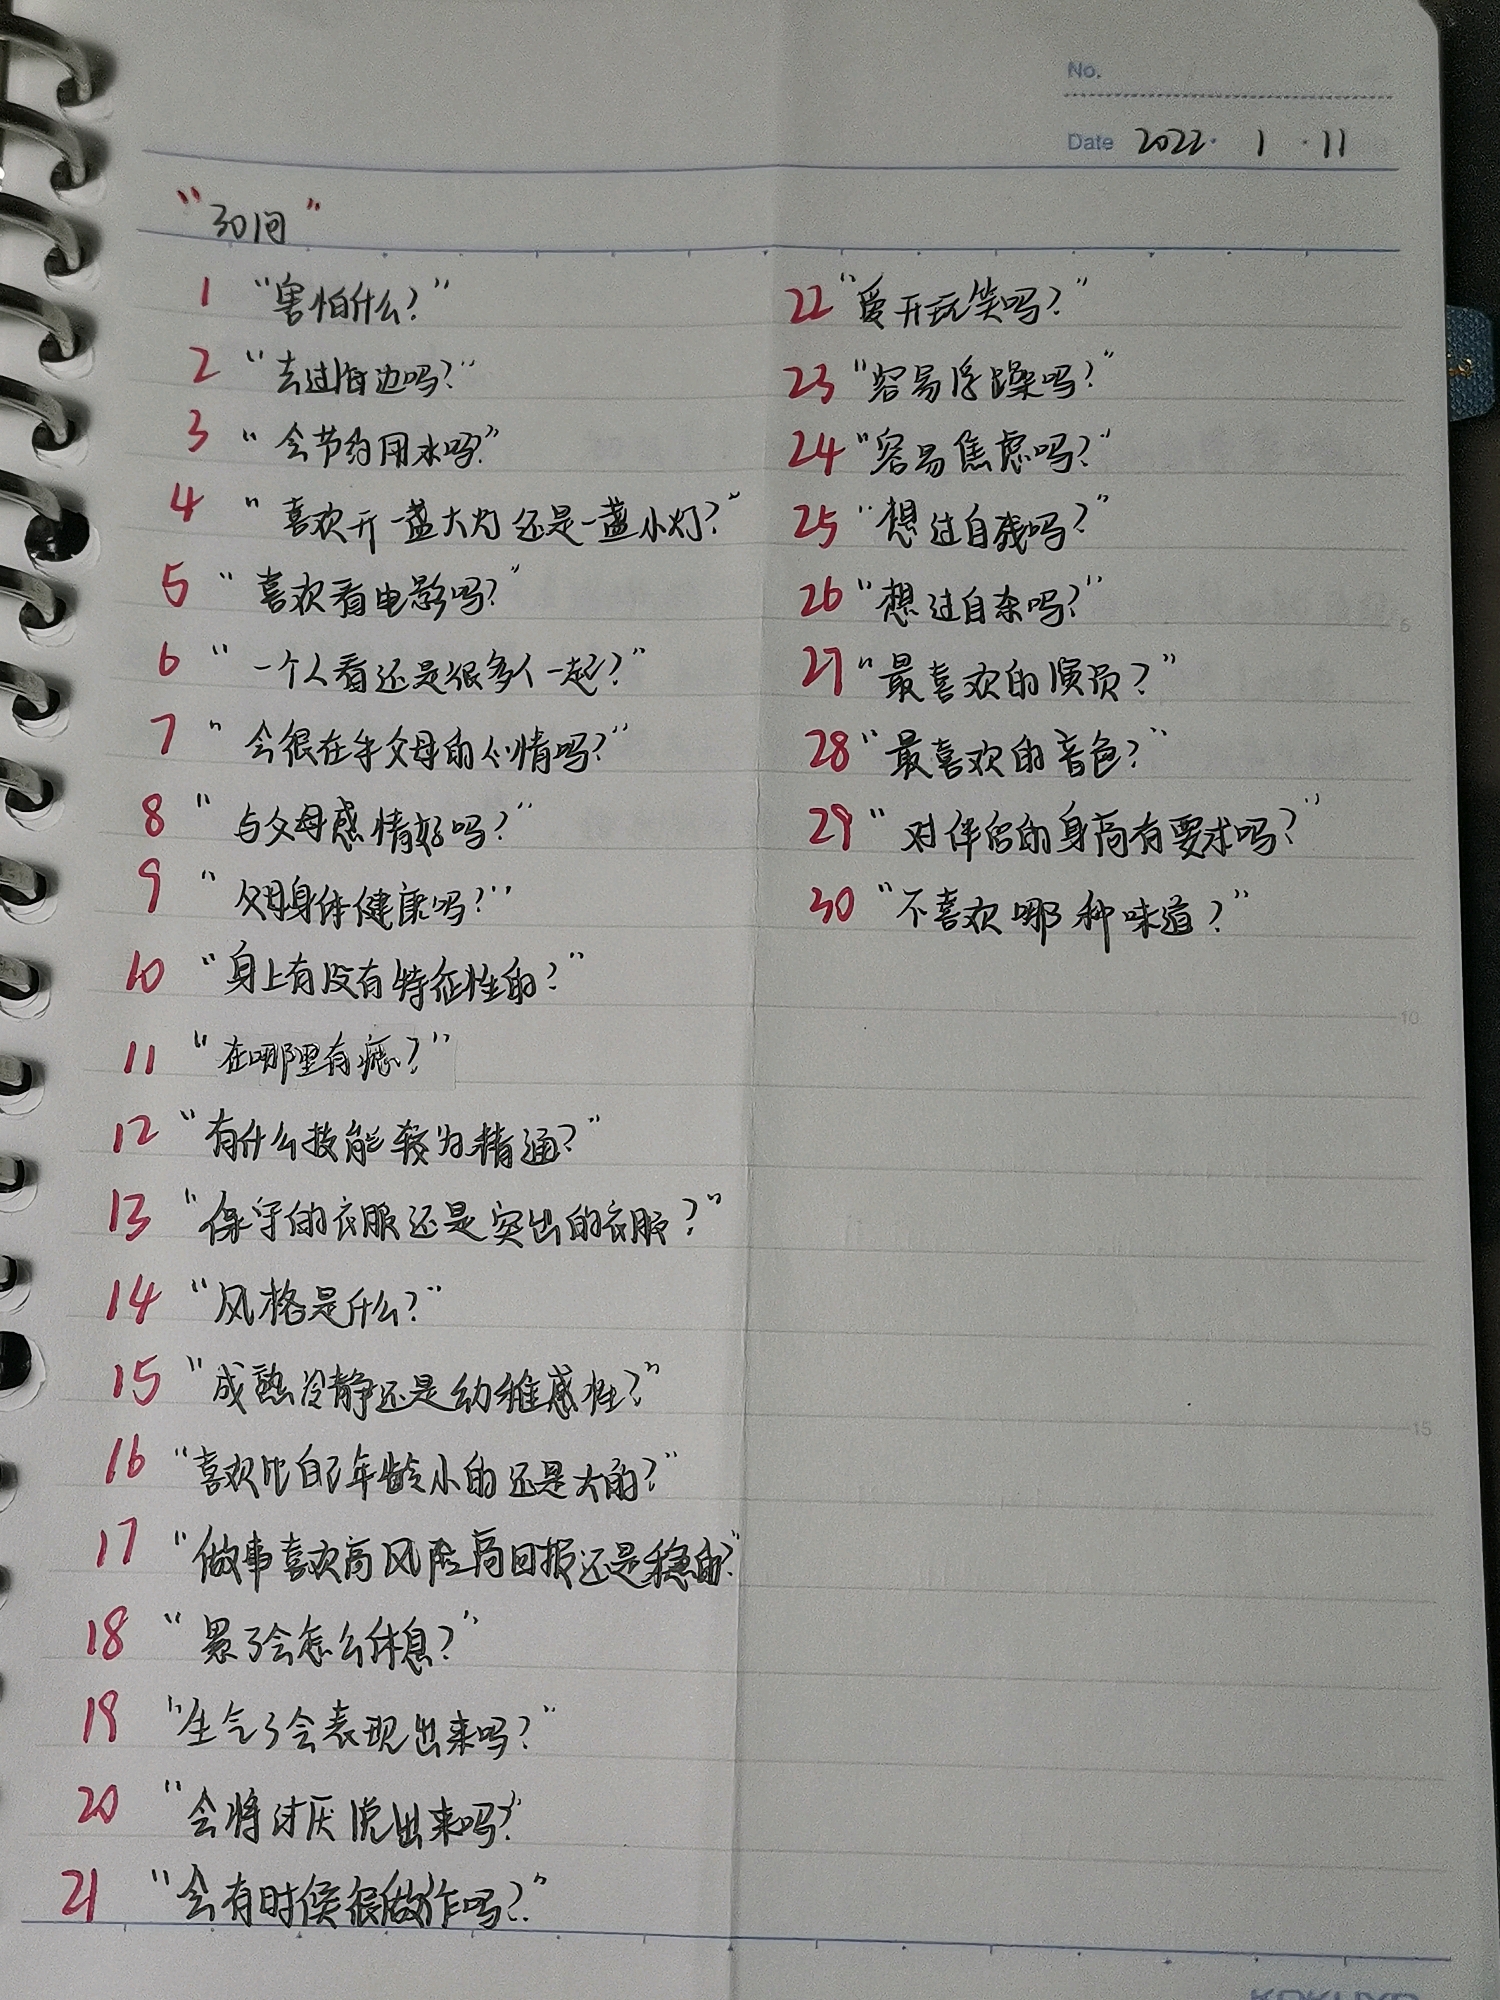 No.
Date 2022. 1 .11
"30问"
1 "害怕什么?"
2 "去过海边吗?"
3 "会节约用水吗?"
4 "喜欢开一盏大灯还是一盏小灯?"
5 "喜欢看电影吗?"
6 "一个人看还是很多人一起?"
7 "会很在乎父母的心情吗?"
8 "与父母感情好吗?"
9 "父母身体健康吗?"
10 "身上有没有特征性的?"
11 "在哪里有痣?"
12 "有什么技能较为精通?"
13 "保守的衣服还是突出的衣服?"
14 "风格是什么?"
15 "成熟冷静还是幼稚感性?"
16 "喜欢比自己年龄小的还是大的?"
17 "做事喜欢高风险高回报还是稳的?"
18 "累了会怎么休息?"
19 "生气了会表现出来吗?"
20 "会将讨厌说出来吗?"
21 "会有时候很做作吗?"
22 "爱开玩笑吗?"
23 "容易浮躁吗?"
24 "容易焦虑吗?"
25 "想过自残吗?"
26 "想过自杀吗?"
27 "最喜欢的演员?"
28 "最喜欢的音色?"
29 "对伴侣的身高有要求吗?"
30 "不喜欢哪种味道?"
6
10
15
KOKUYO